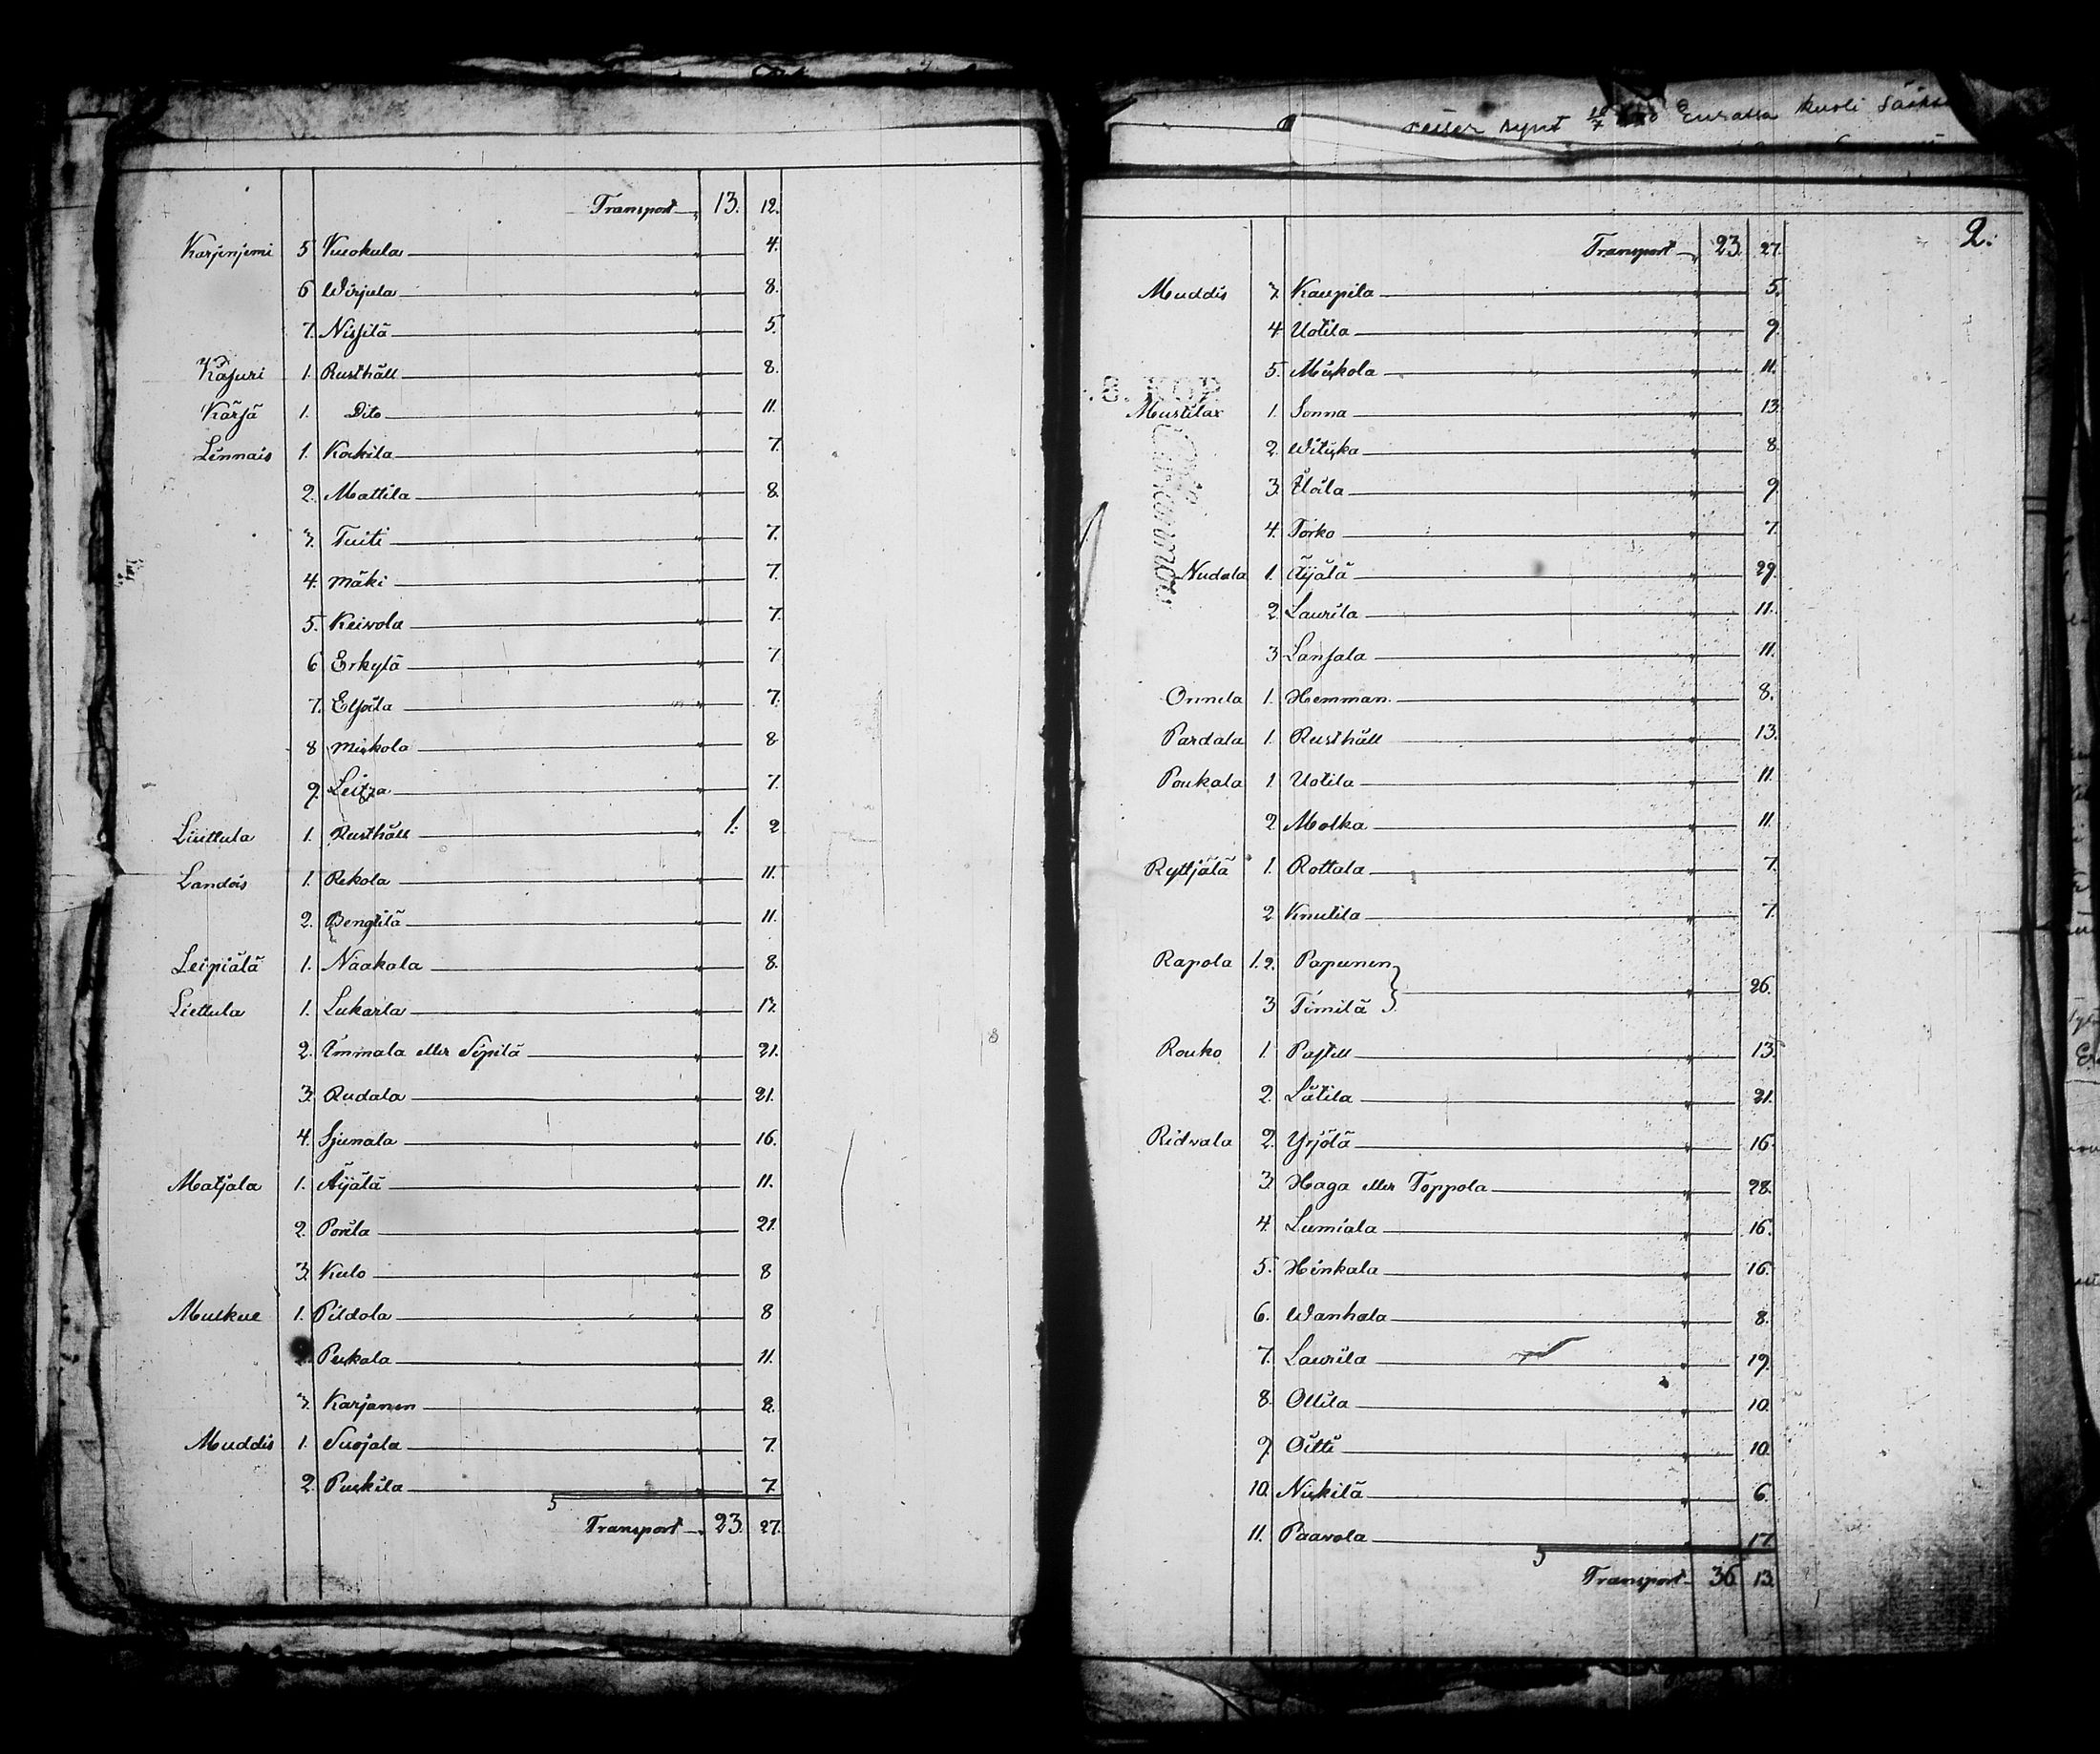 Transport 13. 12.
Karjenjemi 5 Kuokula 4.
6 Wirjula 8.
7. Nissilä 5.
Käsuri 1. Rusthåll 8.
Kärsä 1. Dito 11.
Linnais 1. Kakila 7.
2. Mattila 8.
3. Tuiti 7.
4. Mäki 7.
5. Keivola 7.
6 Erkylä 7.
7. Elsoila 7.
8 Miskola 8
9. Leitza 7.
Liuttula 1. Rusthåll 1. 2
Landois 1. Rekola 11.
2. Bengtilä 11.
Leipiälä 1. Naakala 8.
Liettula 1. Lukarla 13.
2. Ummala eller Sipilä 21.
3. Rudala 21.
4. Sjunala 16.
Matjala 1. Äijälä 11.
2. Porila 21.
3. Kulo 8
Mulkue 1. Pildola 8
Peskala 11.
3. Karjanen 8.
Muddis 1. Suojala 7.
2. Puskila 7.
Transport 23. 27.
Eurassa kuoli
2.
Transport 23. 27.
Muddis 3. Kaupila 5.
4 Uotila 9.
5. Miskola 11.
8. KOP
Mustilax 1. Sonna 13.
2. Wituka 8.
3. Ylöla 9.
4. Torko 7.
Nudala 1. Äijälä 29.
2. Laurila 11.
3 Lansala 11.
Onnela 1. Hemman. 8.
Pardala 1. Rusthåll 13.
Poukala 1. Uotila 11.
2 Molka 11.
Ryttjälä 1. Rottala 7.
2 Knutila 7.
Rapola 1.2. Papunen
26.
3 Timilä
Rouko 1. Pastell 13.
2. Lutila 21.
Ridvala 2. Yrjölä 16.
3. Haga eller Toppola 28.
4. Lumiala 16.
5. Hinkala 16.
6. Wanhala 8.
7. Laurila 19.
8. Ollila 10.
9. Oitti 10.
10. Niskilä 6.
11. Paavola 17.
Transport 36. 13.